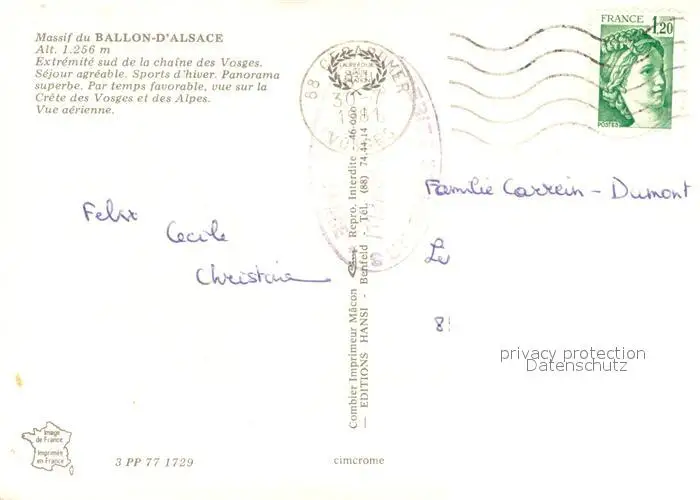 Massif du BALLON-D'ALSACE
Alt. 1.256 m
Extrémité sud de la chaîne des Vosges.
Séjour agréable. Sports d'hiver. Panorama
superbe. Par temps favorable, vue sur la
Crête des Vosges et des Alpes.
Vue aérienne.
FRANCE 1,20
POSTES
88 GERARDMER
VOSGES
Felix
Cecile
Christine
Famille Carrein - Dumont
Le
8
Combier Imprimeur Mâcon Repro. Interdite
EDITIONS HANSI - Benfeld - Tél. (88) 74.44.14
privacy protection
Datenschutz
Image
de France
Imprimée
en France
3 PP 77 1729
cimcrome